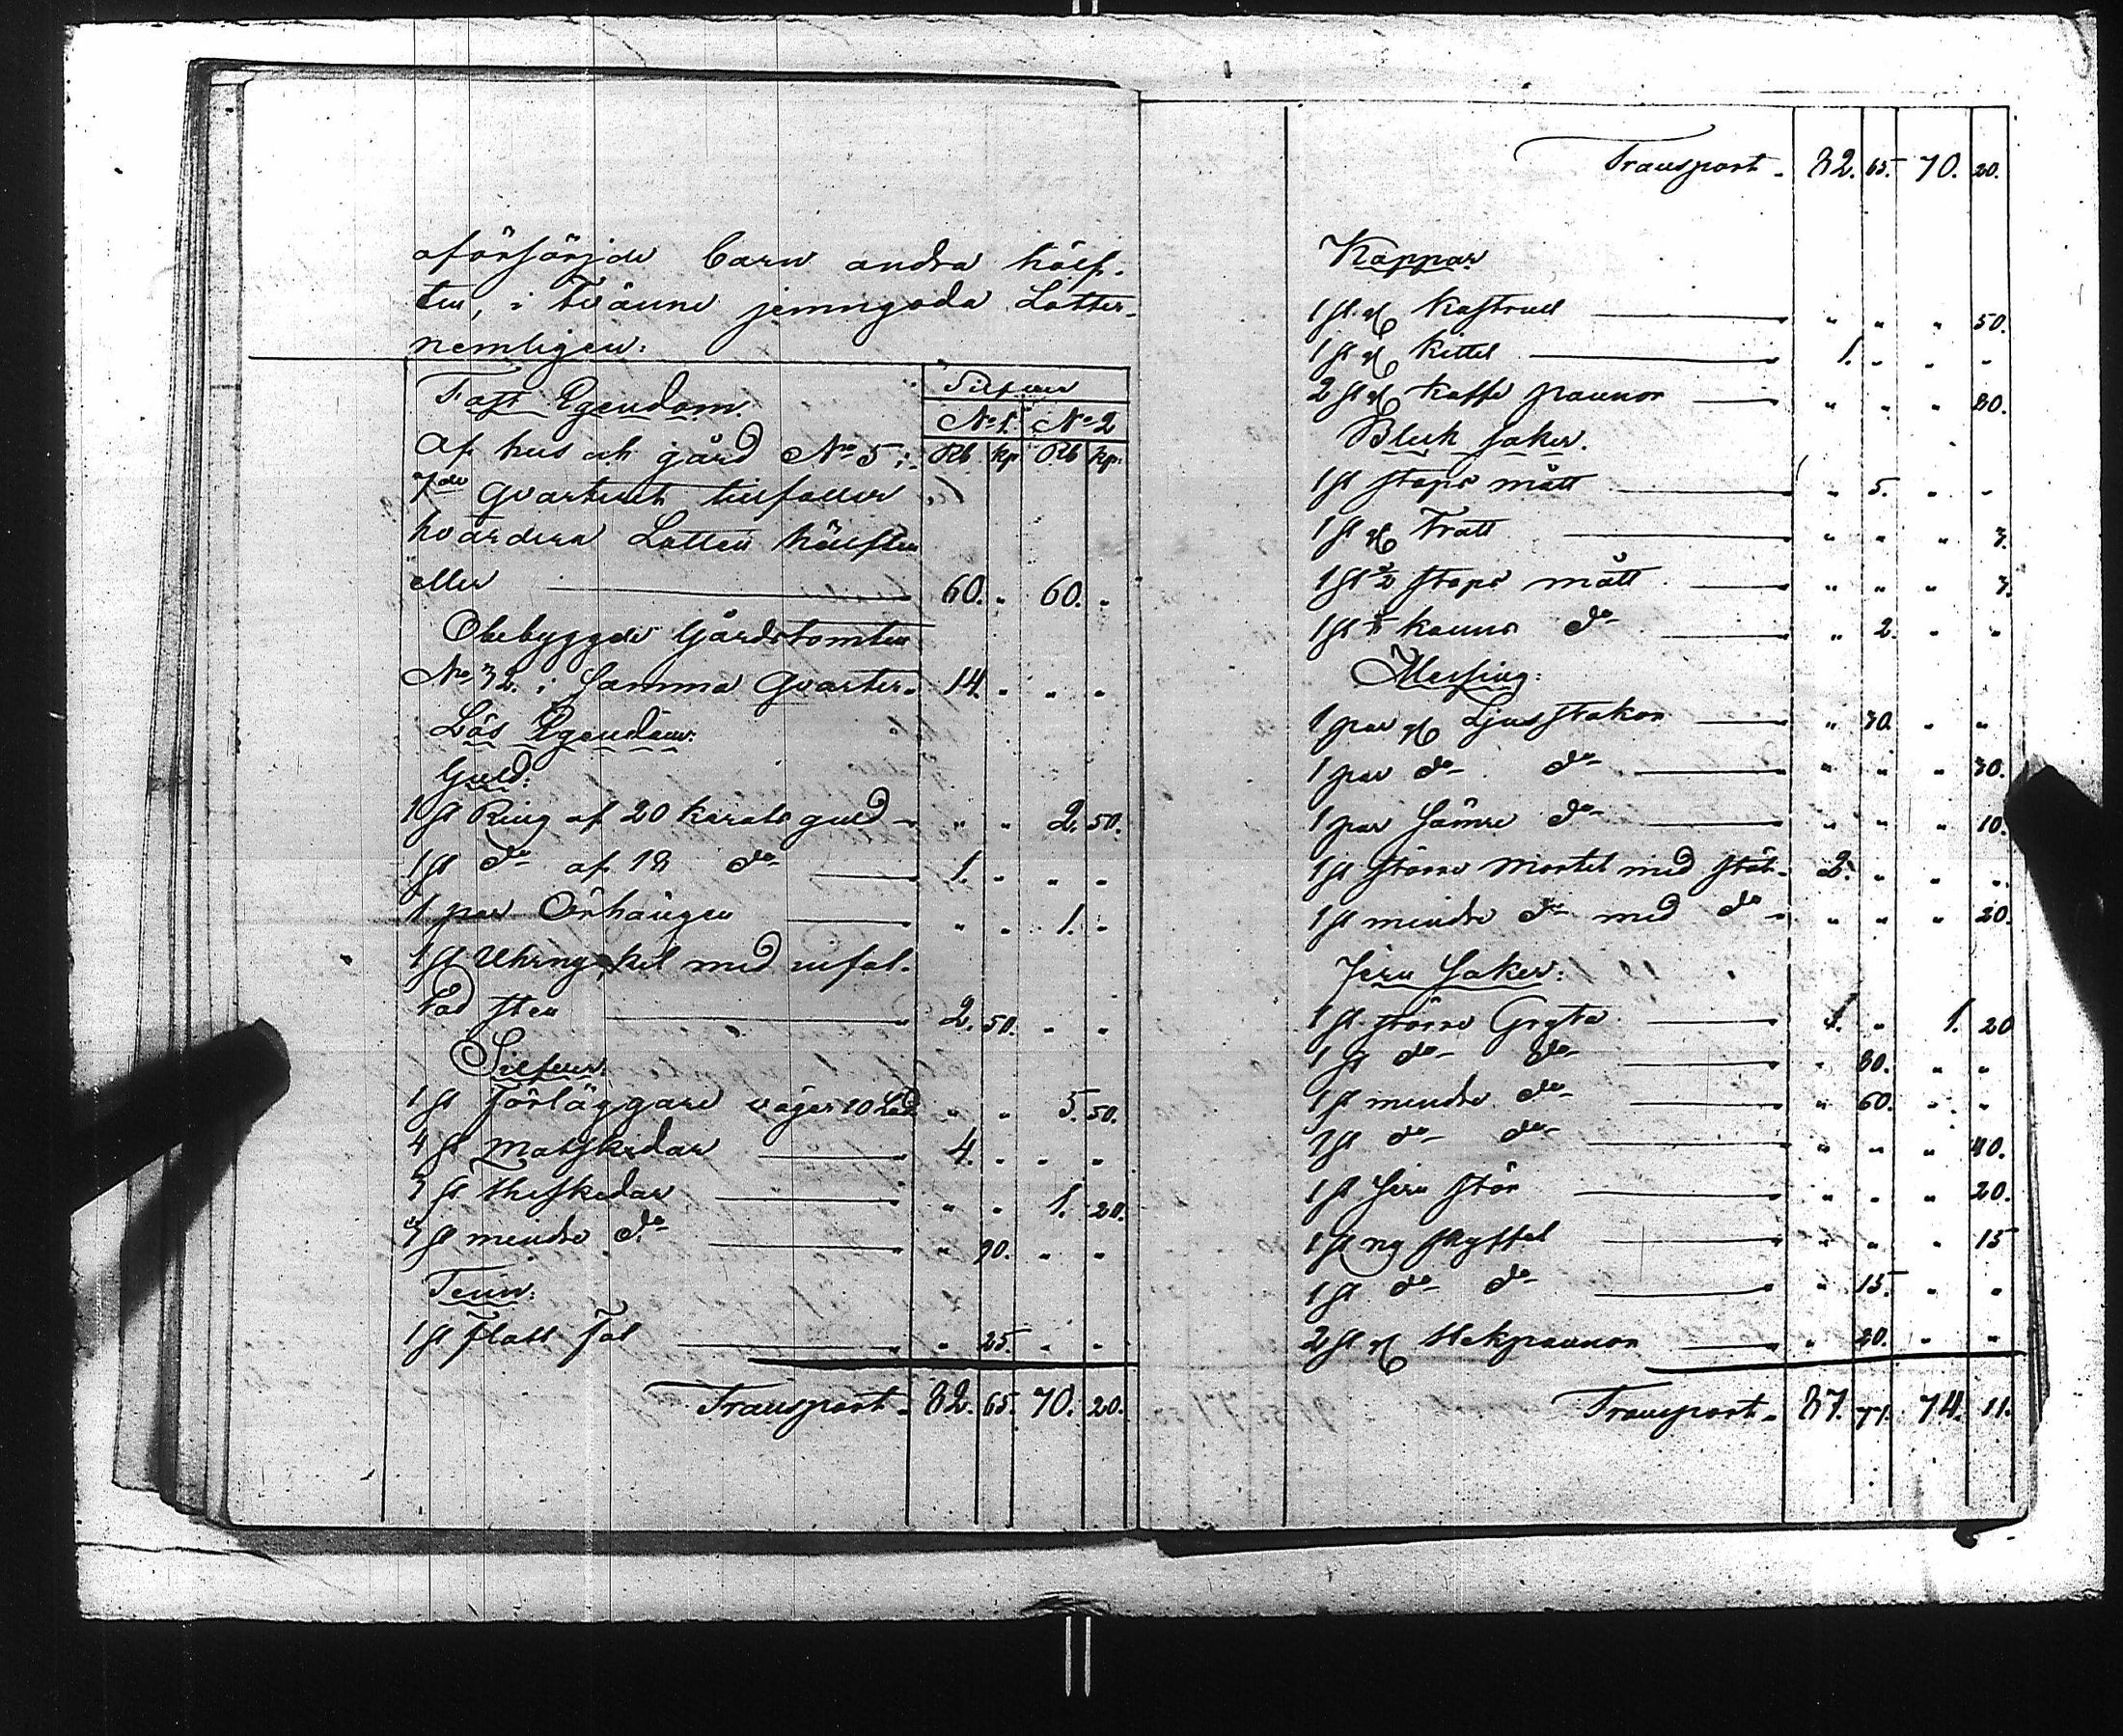 oförsörjde barn andra hälf-
ten, i Tvänne jemngoda Lotter.
nemligen:
Silfver
Fast Egendom
No 1. No 2
Af hus och gård No 5 i Rb kp Rb kp.
7de Qvarteret tillfaller
hvardera Lotten hälften
eller 60. " 60. "
Obebyggde Gårdstomten
No 32. i samma Qvarter. 14. " " "
Lös Egendom:
Guld:
1 st Ring af 20 karats guld " " 2. 50.
1 st do af 18 do 1. " " "
1 par Örhängen " " 1. "
1 st Uhrnyckel med infat-
tad sten 2. 50. " "
Silfver:
1 st Förläggare väger 10 Lod " " 5. 50.
4 st Matskedar 4. " " "
3 st theskedar " " 1. 20.
3 st mindre do " 90. " "
Tenn:
1 st Flatt Fat " 25. " "
Transport. 82. 65. 70. 20.
Transport. 82. 65. 70. 20.
Koppar
1 st Kastrull " " " 50.
1 st Kittel 1. " " "
2 st Kaffe pannor " " " 80.
Bleck saker.
1 st stops mått " 5. " "
1 st Tratt " " " 3.
1 st 1/2 stops mått " " " 3.
1 st kanns do " 2. " "
Messing:
1 par Ljusstakar " 30. " "
1 par do do " " " 30.
1 par sämre do " " " 10.
1 st större Mortel med stöt. 2. " " "
1 st mindre do med do " " " 20.
Jern saker:
1 st större Gryta 1. " 1. 20
1 st do do " 80. " "
1 st mindre do " 60. " "
1 st do do " " " 40.
1 st Jern stör " " " 20.
1 st ny skyffel " " " 15
1 st do do " 15. " "
2 st Stekpannor " 20. " "
Transport. 87. 77. 74. 11.